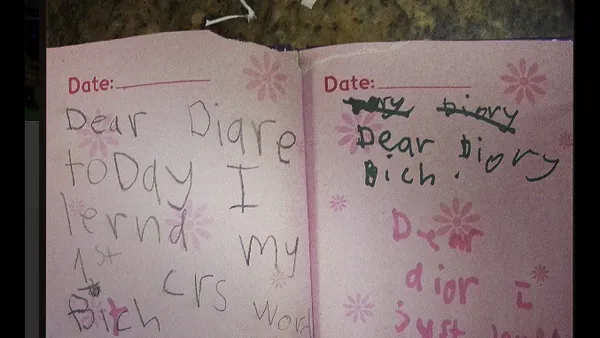 Date:
Dear Diare
toDay I
lernd my
1st crs word
Bitch
Date:
Diory
Dear Diory
Bich.
Dear
dior I
just